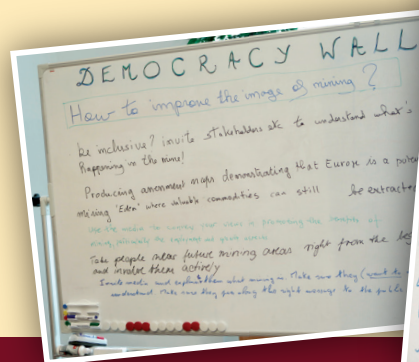 DEMOCRACY WALL
How to improve the image of mining?
be inclusive? invite stakeholders etc to understand what's
happening in the mine!
Producing maps demonstrating that Europe is a
mining 'Eden' where valuable commodities can still be extracted
Use the media to your views in promoting the benefits of
mining,
Take people near future mining areas right from the
and involve them actively
Invite media and explain them what mining is. Make sure they (
understand. Make sure they give along the right message to the public